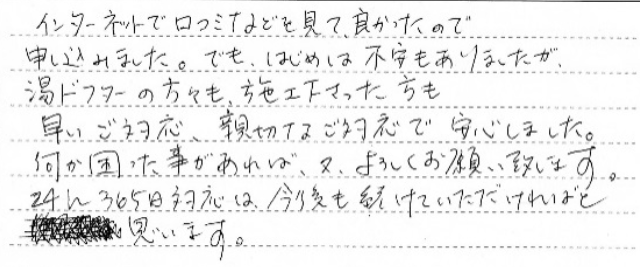 インターネットで口コミなどを見て、良かったので
申し込みました。でも、はじめは不安もありましたが、
湯ドクターの方々も、施工下さった方も
早いご対応、親切なご対応で安心しました。
何か困った事があれば、又、よろしくお願い致します。
24h 365日対応は、今後も続けていただければと
思います。